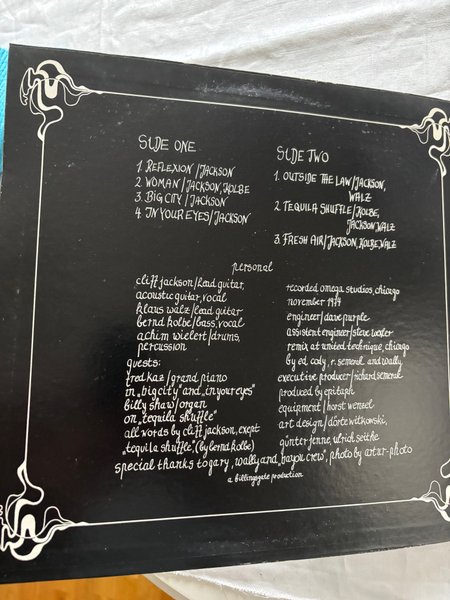 SIDE ONE
1. REFLEXION/JACKSON
2. WOMAN/JACKSON, KOLBE
3. BIG CITY/JACKSON
4. IN YOUR EYES/JACKSON
SIDE TWO
1. OUTSIDE THE LAW/JACKSON,
WALZ
2. TEQUILA SHUFFLE/KOLBE,
JACKSON, WALZ
3. FRESH AIR/JACKSON, KOLBE, WALZ
personal
cliff jackson/lead guitar,
acoustic guitar, vocal
klaus walz/lead guitar
bernd kolbe/bass, vocal
achim wielert/drums,
percussion
guests:
fred kaz/grand piano
in „big city" and „in your eyes"
billy shaw/organ
on „tequila shuffle"
all words by cliff jackson, exept
„tequila shuffle" (by bernd kolbe)
recorded omega studios, chicago
november 1974
engineer/dave purple
assistent engineer/steve wexler
remix at united technique, chicago
by ed cody, r. semerak and wally,
executive producer/richard semerak
produced by epitaph
equipment/horst wenzel
art design/dörte witkowski,
günter fenne, ulrich seithe
special thanks to gary, wally and „bayou crew", photo by artur-photo
a billingsgate production